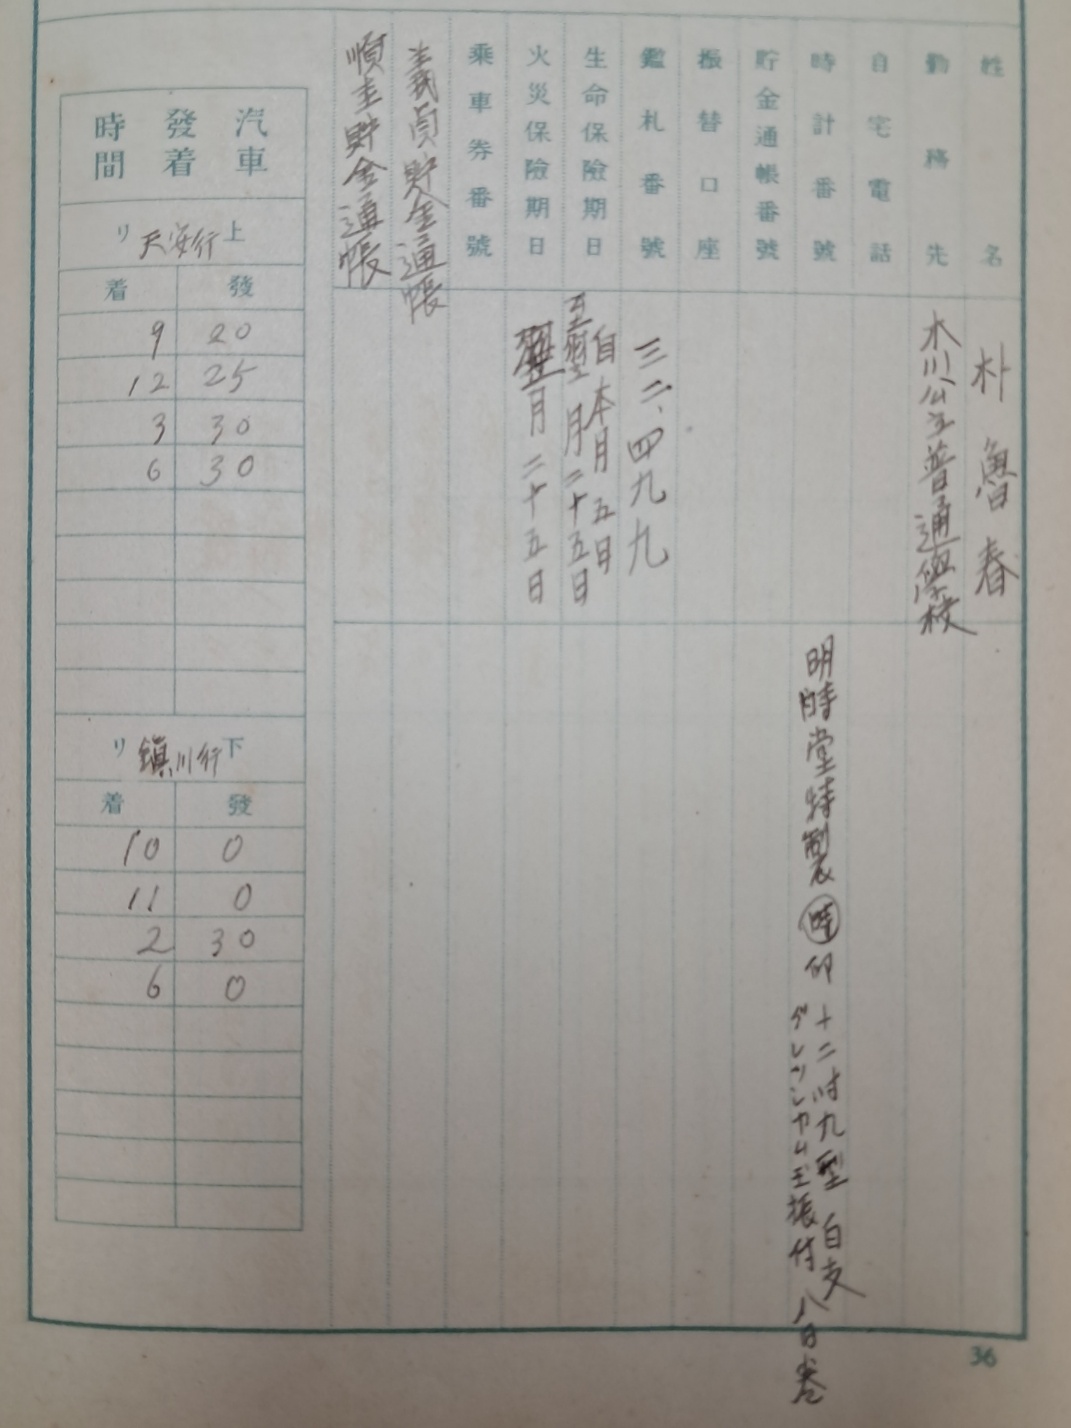 姓名
朴魯春
勤務先
木川公立普通學校
自宅電話
時計番號
明時堂特製 時 印
十二吋丸型 白支
グレツシカム玉振付 八日巻
貯金通帳番號
振替口座
鑑札番號
三二、四九九
生命保險期日
自本月五日
至翌月二十五日
火災保險期日
翌月二十五日
乘車券番號
義貞貯金通帳
順圭貯金通帳
汽車發着時間
上リ 天安行
發 着
9 20
12 25
3 30
6 30
下リ 鎭川行
發 着
10 0
11 0
2 30
6 0
36